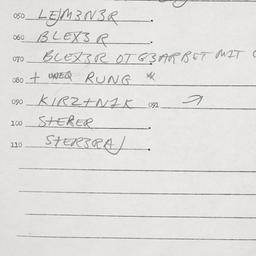 050 LEJM3N3R
060 BLEX3R
070 BLEX3R OT G3ARBET MIT
080 + RUNG *
090 KIRZTNIK 091
100 STERER
110 STER3RAJ